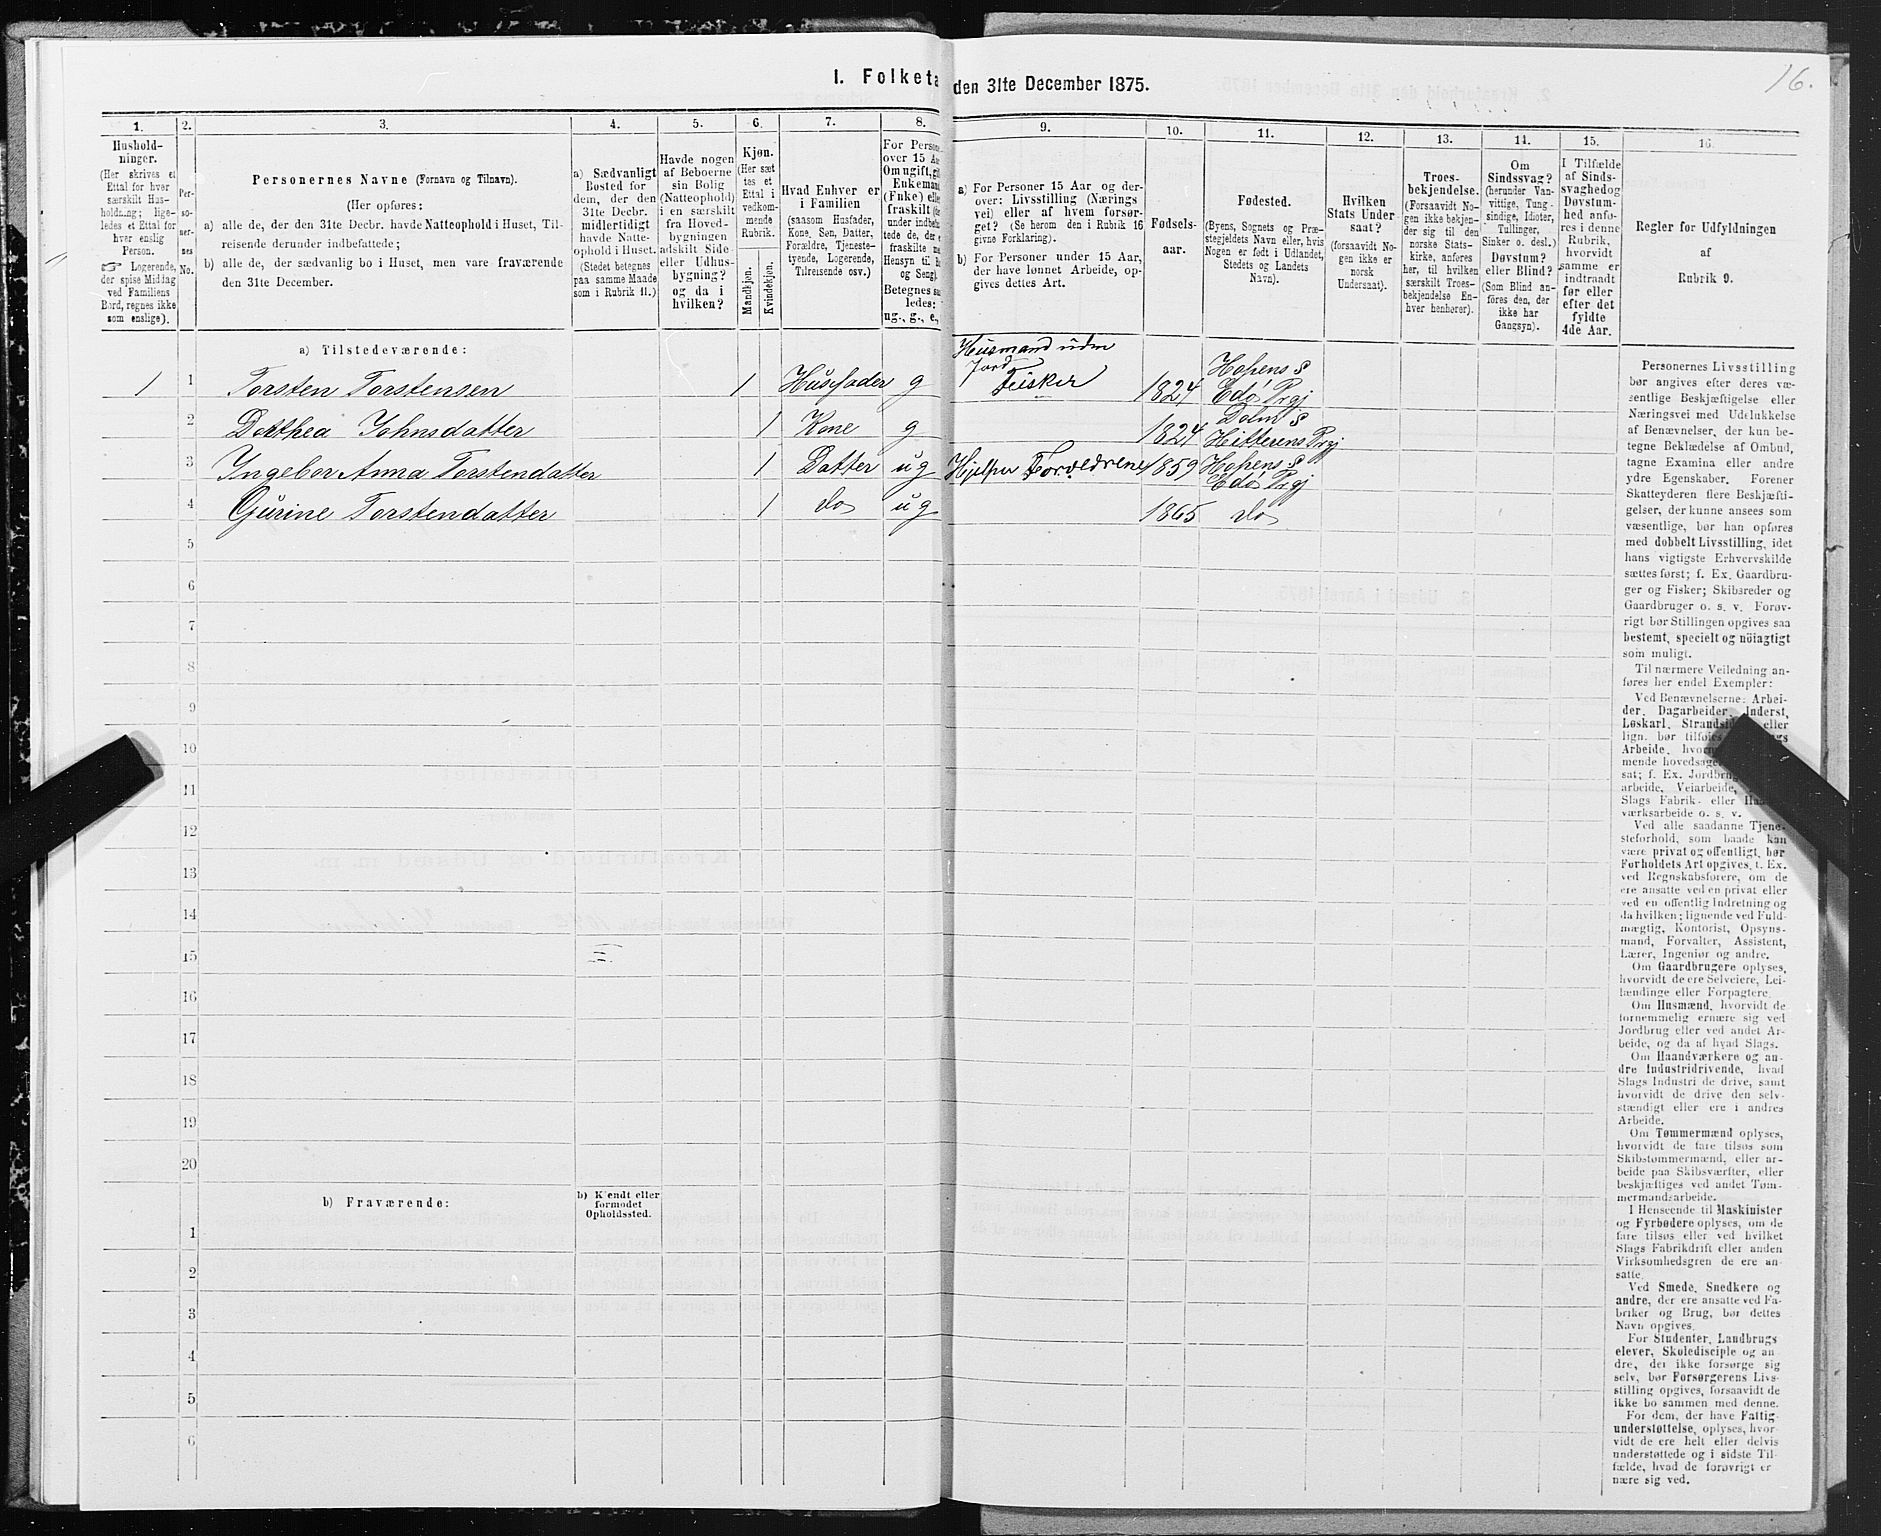 I. Folketa
den 31te December 1875.
16.
1.
Hushold-
ninger.
(Her skrives et
Ettal for hver
særskilt Hus-
holdning; lige-
ledes et Ettal for
hver enslig
Person.
☞ Logerende,
der spise Middag
ved Familiens
Bord, regnes ikke
som enslige).
2.
Per-
so-
ner-
nes
No.
3.
Personernes Navne (Fornavn og Tilnavn).
(Her opføres:
a) alle de, der den 31te Decbr. havde Natteophold i Huset, Til-
reisende derunder indbefattede;
b) alle de, der sædvanlig bo i Huset, men vare fraværende
den 31te December.
4.
a) Sædvanligt
Bosted for
dem, der den
31te Decbr.
midlertidigt
havde Natte-
ophold i Huset.
(Stedet betegnes
paa samme Maade
som i Rubrik 11.)
5.
Havde nogen
af Beboerne
sin Bolig
(Natteophold)
i en særskilt
fra Hoved-
bygningen
adskilt Side-
eller Udhus-
bygning?
og da i
hvilken?
6.
Kjøn.
(Her sæt
tes et
Ettal i
vedkom-
mende
Rubrik.
Mandkjøn.
Kvindekjøn.
7.
Hvad Enhver er
i Familien
(saasom Husfader,
Kone, Søn, Datter,
Forældre, Tjeneste-
tyende, Logerende,
Tilreisende osv.)
8.
For Persone
over 15 Aa
Om ugift, gif
Enkemand
(Enke) elle
fraskilt
under indbe
tede de, der
fraskilte
Hensyn til B
og Seng).
Betegnes saa
ledes:
ug., g., e.,
9.
a) For Personer 15 Aar og der-
over: Livsstilling (Nærings
vei) eller af hvem forsør-
get? (Se herom den i Rubrik 16
givne Forklaring).
b) For Personer under 15 Aar,
der have lønnet Arbeide, op-
gives dettes Art.
10.
Fødsels-
aar.
11.
Fødested.
(Byens, Sognets og Præ-
stegjeldets Navn eller, hvis
Nogen er født i Udlandet,
Stedets og Landets
Navn).
12.
Hvilken
Stats Under-
saat?
(forsaavidt No-
gen ikke er
norsk
Undersaat).
13.
Troes-
bekjendelse.
(Forsaavidt No-
gen ikke bekjen-
der sig til den
norske Stats-
kirke, anføres
her, til hvilken
særskilt Troes-
bekjendelse En-
hver henhører).
14.
Om
Sindssvag?
(herunder Van-
vittige, Tung-
sindige, Idioter,
Tullinger,
Sinker o. desl.)
Døvstum?
eller Blind?
(Som Blind an-
føres den, der
ikke har
Gangsyn).
15.
I Tilfælde
af Sinds-
svaghed og
Døvstum-
hed anfø-
res i denne
Rubrik,
hvorvidt
samme er
indtraadt
før eller
efter det
fyldte
4de Aar.
16.
Regler for Udfyldningen
af
Rubrik 9.
a) Tilstedeværende:
Husmand uden
Jord
1 1 Torsten Torstensen 1 Husfader g Fisker 1824 Hopens S Edö Prgj
2 Dorthea Johnsdatter 1 Kone g 1824 Dolm S Hitterens Prgj
3 Ingebor Anna Torstendatter 1 Datter ug Hjelper Forældrene 1859 Hopens S Edö Prgj
4 Gurine Torstendatter 1 do ug 1865 do
5
6
7
8
9
10
11
12
13
14
15
16
17
18
19
20
b) Fraværende:
b) Kjendt eller
formodet
Opholdssted.
1
2
3
4
5
6
Personernes Livsstilling
bør angives efter deres væ-
sentlige Beskjæftigelse eller
Næringsvei med Udelukkelse
af Benævnelser, der kun be-
tegne Beklædelse af Ombud,
tagne Examina eller andre
ydre Egenskaber. Forener
Skatteyderen flere Beskjæfti-
gelser, der kunne ansees som
væsentlige, bør han opføres
med dobbelt Livsstilling, idet
hans vigtigste Erhvervskilde
sættes først; f. Ex. Gaardbru-
ger og Fisker; Skibsreder og
Gaardbruger o. s. v. Forøv-
rigt bør Stillingen opgives saa
bestemt, specielt og nöiagtigt
som muligt.
Til nærmere Veiledning an-
føres her endel Exempler:
Ved Benævnelserne: Arbei-
der, Dagarbeider, Inderst,
Løskarl, eller
lign. bør
Arbeide,
mende
sat; f. Ex.
arbeide, Veiarbeide,
Slags Fabrik- eller
værksarbeide o. s. v.
Ved alle saadanne Tjene-
steforhold, som baade kan
være privat og offentligt, bør
Forholdets Art opgives, t. Ex.
ved Regnskabsførere, om de
ere ansatte ved en privat eller
ved en offentlig Indretning og
da hvilken; lignende ved Fuld-
mægtig, Kontorist, Opsyns-
mand, Forvalter, Assistent,
Lærer, Ingeniør og andre.
Om Gaardbrugere oplyses,
hvorvidt de ere Selveiere, Lei-
lændinge eller Forpagtere.
Om Husmænd, hvorvidt de
fornemmelig ernære sig ved
Jordbrug eller ved andet Ar-
beide, og da af hvad Slags.
Om Haandværkere og an-
dre Industridrivende, hvad
Slags Industri de drive, samt
hvorvidt de drive den selv-
stændigt eller ere i andres
Arbeide.
Om Tømmermænd oplyses,
hvorvidt de fare tilsøs som
Skibstømmermænd, eller ar-
beide paa Skibsværfter, eller
beskjæftiges ved andet Tøm-
mermandsarbeide.
I Henseende til Maskinister
og Fyrbødere oplyses, om de
fare tilsøs eller ved hvilket
Slags Fabrikdrift eller anden
Virksomhedsgren de ere an-
satte.
Ved Smede, Snedkere og
andre, der ere ansatte ved Fa-
briker og Brug, bør dettes
Navn opgives.
For Studenter, Landbrugs
elever, Skoledisciple og an
dre, der ikke forsørge sig
selv, bør Forsørgerens Livs-
stilling opgives, forsaavidt de
ikke bo sammen med denne.
For dem, der have Fattig-
understøttelse, oplyses, hvor-
vidt de ere helt eller delvis
understøttede og i sidste Til-
fælde, hvad de forøvrigt er
nære sig ved.